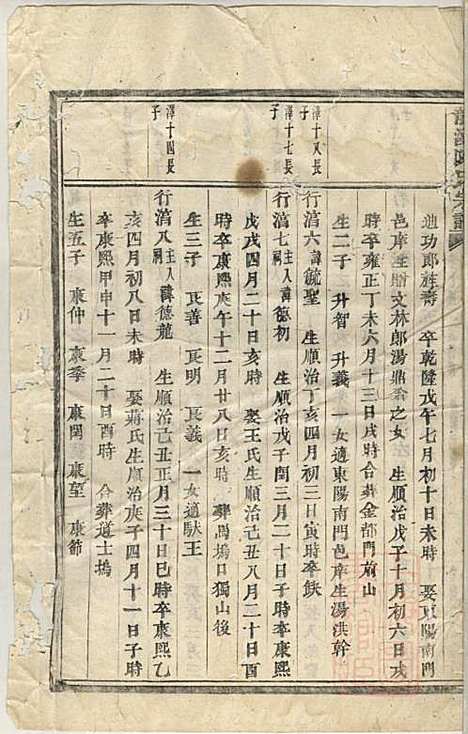 迪功郎旌壽　卒乾隆戊午七月初十日未時　娶東陽南門
邑庠生贈文林郎湯鼎翁之女　生順治戊子十月初六日戌
時卒雍正丁未六月十三日戌時合葬金都門前山
生二子　升智　升義　一女適東陽南門邑庠生湯洪幹
澤十八長子
行滈六諱毓聖　生順治丁亥四月初三日寅時卒缺
澤十七長子
行滈七主人祠諱德初　生順治戊子閏三月二十日時卒康熙
戊戌四月二十日亥時　娶王氏生順治己丑八月二十日酉
時卒康熙庚午十二月廿八日亥時　葬馬塢口獨山後
生三子　艮善　艮明　艮義　一女適馱王
澤十四長子
行滈八主人祠諱德龍　生順治己丑正月三十日巳時卒康熙乙
亥四月初八日未時　娶蔣氏生順治庚子四月十一日子時
卒康熙甲申十一月二十日酉時　合葬道士塢
生五子　康仲　康季　康閏　康望　康節